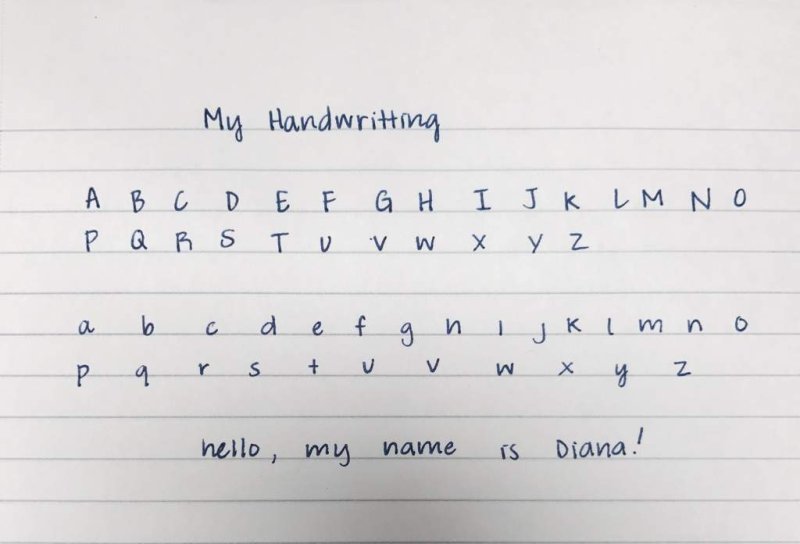 My Handwritting
A B C D E F G H I J K L M N O
P Q R S T U V W X Y Z
a b c d e f g h i j k l m n o
p q r s t u v w x y z
hello, my name is Diana!